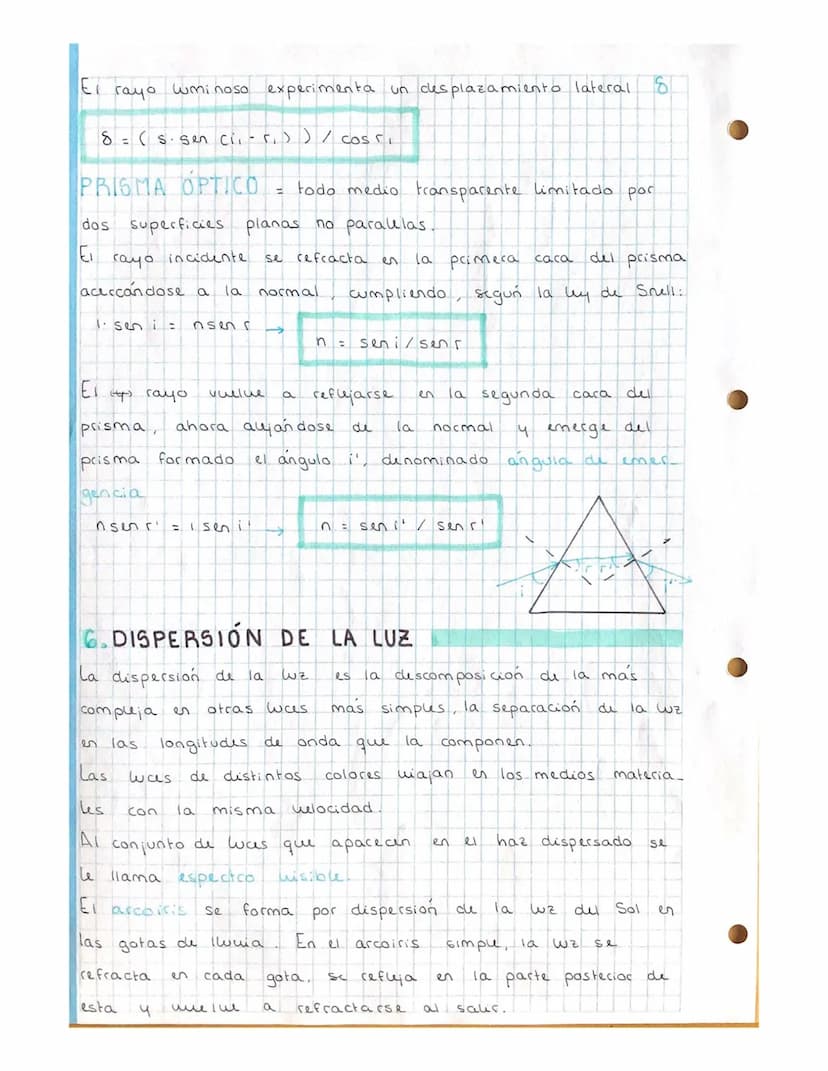 El rayo luminoso experimenta un desplazamiento lateral δ
δ = ( s · sen (i₁ - r₁ ) ) / cos r₁
PRISMA ÓPTICO = todo medio transparente limitado por
dos superficies planas no paralelas.
El rayo incidente se refracta en la primera cara del prisma
acercándose a la normal, cumpliendo, según la ley de Snell:
1· sen i = n sen r →
n = sen i / sen r
El rayo vuelve a reflejarse en la segunda cara del
prisma, ahora alejándose de la normal y emerge del
prisma formado el ángulo i', denominado ángulo de emer-
gencia
n sen r' = 1 sen i' →
n = sen i' / sen r'
i r r' i'
6. DISPERSIÓN DE LA LUZ
La dispersión de la luz es la descomposición de la más
compleja en otras luces más simples, la separación de la luz
en las longitudes de onda que la componen.
Las luces de distintos colores viajan en los medios materia-
les con la misma velocidad.
Al conjunto de luces que aparecen en el haz dispersado se
le llama espectro visible.
El arcoiris se forma por dispersión de la luz del Sol en
las gotas de lluvia. En el arcoiris simple, la luz se
refracta en cada gota, se refleja en la parte posterior de
esta y vuelve a refractarse al salir.